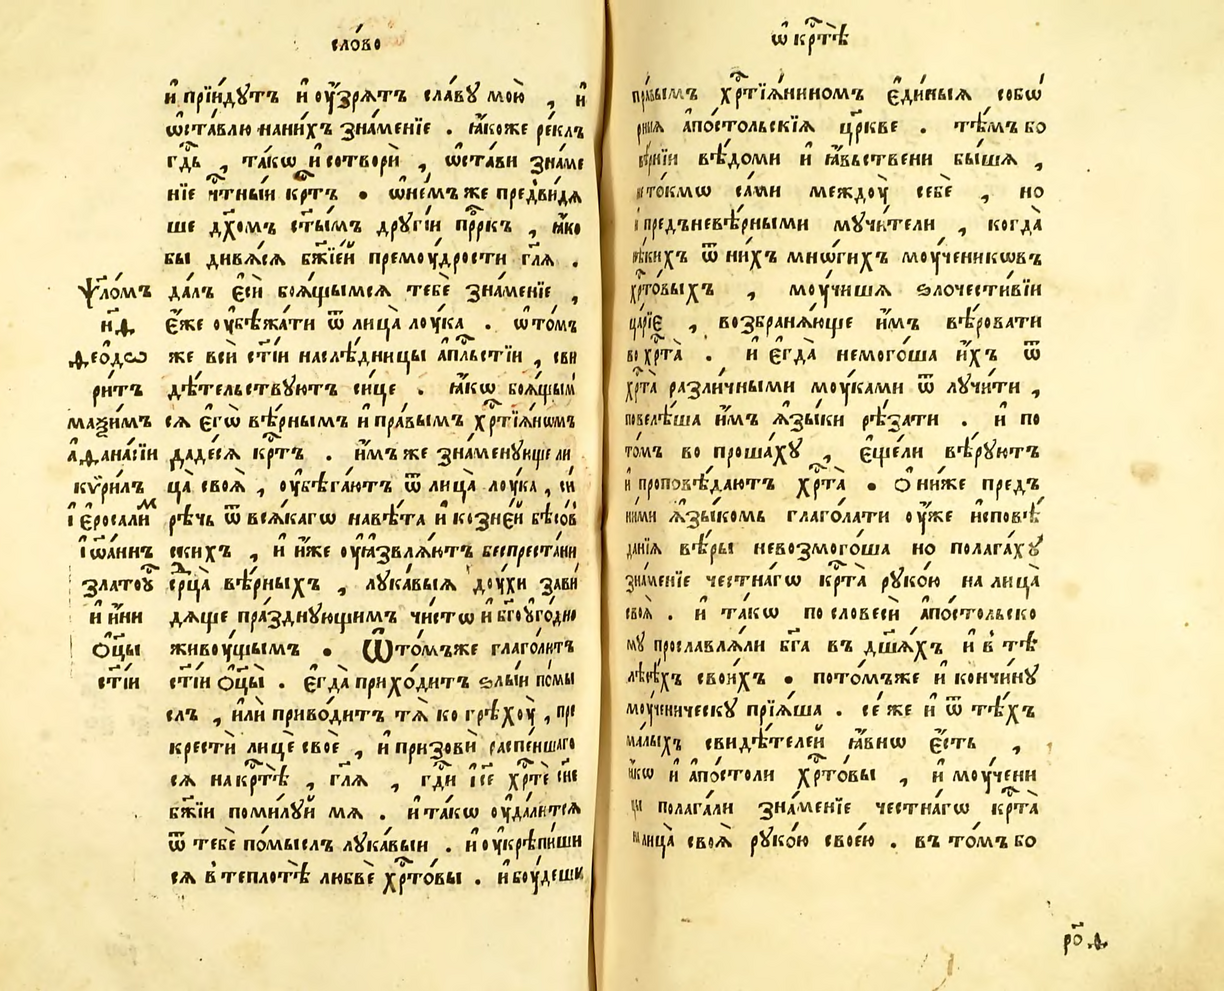 сло́во
и҆ прїи́дутъ и҆ оу҆́зрятъ сла́ву мою̀ , и҆
ѡ҆ста́влю нани́хъ зна́менїе . ꙗ҆́коже ре́клъ
гд҇ь , та́кѡ и҆ сотворѝ , ѡ҆ста́ви зна́ме
нїе чт҇ны́и кр҇тъ . ѡ҆не́мъ же предви́дя
ше дх҃омъ ст҃ы́мъ дрꙋгі́и прⷪ҇ркъ , ꙗ҆́ко
бы дивя́ся бж҃їеи премоу́дрости гл҃я .
да́лъ є҆сѝ боя́щымся тебѐ зна́менїе ,
є҆́же оу҆бѣжа́ти ѿ лица̀ лоу́ка . ѡ҆то́мъ
же всѝ ст҃і́и наслѣ́дницы а҆пⷭ҇льстіи , сви
дѣ́тельствуютъ си́це . ꙗ҆́кѡ боя́щым
ся є҆гѡ̀ вѣ́рнымъ и҆ пра́вымъ хрⷭ҇тїя́нѡмъ
даде́ся кр҇тъ . и҆́мъ же зна́менующе ли
ца̀ своя̀ , оу҆бѣга́ютъ ѿ лица̀ лоу́ка , си
рѣ́чь ѿ вся́кагѡ навѣ́та и҆ ко́зней бѣсо́в
скихъ , и҆ и҆́же оу҆ꙗзвля́ютъ беспреста́ни
срⷣца̀ вѣ́рныхъ , лука́выя доу́хи зави́
дяще пра́зднующимъ чи́стѡ и҆ бг҃оуго́дно
живоу́щымъ . Ѿто́мъже глаго́лютъ
ст҃і́и ѻ҆ц҃ы̀ . є҆гда̀ прихо́дитъ ѕлы́и по́мы
слъ , и҆лѝ приво́дитъ тя̀ ко грѣхоу̀ , пре
крестѝ лицѐ своѐ , и҆ призовѝ распе́ншаго
ся на кр҇тѣ̀ , гл҃я , гд҇и і҆с҃е хрⷭ҇тѐ сн҃е
бж҃їи поми́луй мя . и҆ та́кѡ оу҆дали́тся
ѿ тебѐ по́мыслъ лука́выи . и҆ оу҆крѣпи́ши
ся в теплотѣ̀ любвѐ хрⷭ҇то́вы . и҆ боу́деши
ѱало́мъ
н҃ѳ
ѳео́дѡ
ритъ
маѯи́мъ
а҆ѳана́сїи
кѷри́лъ
і҆єросали́м
і҆ѡа́ннъ
златоу́
и҆ и҆ни
ѻ҆ц҃ы
ст҃іи
ѡ҆ кр҇тѣ̀
пра́вымъ хрⷭ҇тїя́нином є҆ди́ныя собѡ́
рныя а҆по́стольскїя цр҃кве . тѣ́мъ бо
вѣ́рнїи вѣ́доми и҆ ꙗ҆́вьствени бы́шя ,
нето́кмѡ са́ми междоу̀ себѐ , но
и҆ предъневѣ́рными мучи́тели , когда̀
нѣ́кихъ ѿ ни́хъ мнѡ́гихъ моу́ченикѡвъ
хрⷭ҇то́выхъ , моу́чишя ѕлочести́вїи
ца́рїе , возбраня́юще и҆́мъ вѣ́ровати
во хрⷭ҇та̀ . и҆ є҆гда̀ немого́ша и҆́хъ ѿ
хрⷭ҇та̀ разли́чными моу́ками ѿ лучи́ти ,
повелѣ́ша и҆́мъ я҆зы́ки рѣ́зати . и҆ по
то́мъ во проша́ху , є҆ще́ли вѣ́руютъ
и҆ проповѣ́даютъ хрⷭ҇та̀ . Ѻ҆ни́же предъ
ни́ми я҆зы́комь глаго́лати оу҆́же и҆сповѣ́
данїя вѣ́ры невозмого́ша но полага́ху
зна́менїе че́стнагѡ кр҇та̀ руко́ю на лица̀
своя̀ . и҆ та́кѡ по словесѝ а҆по́стольско
му прославля́ли бг҃а въ дш҃я́хъ и҆ в тѣ
лесѣ́хъ свои́хъ . пото́мъже и҆ кончи́ну
моу́ченическу прїя́ша . се́ же и҆ ѿ тѣ́хъ
ма́лыхъ свидѣ́телей ꙗ҆́внѡ є҆́сть ,
ꙗ҆́кѡ и҆ а҆по́столи хрⷭ҇то́вы , и҆ моу́чени
цы полага́ли зна́менїе че́стнагѡ кр҇та̀
на лица̀ своя̀ руко́ю свое́ю . въ то́мъ бо
ро҃ѳ